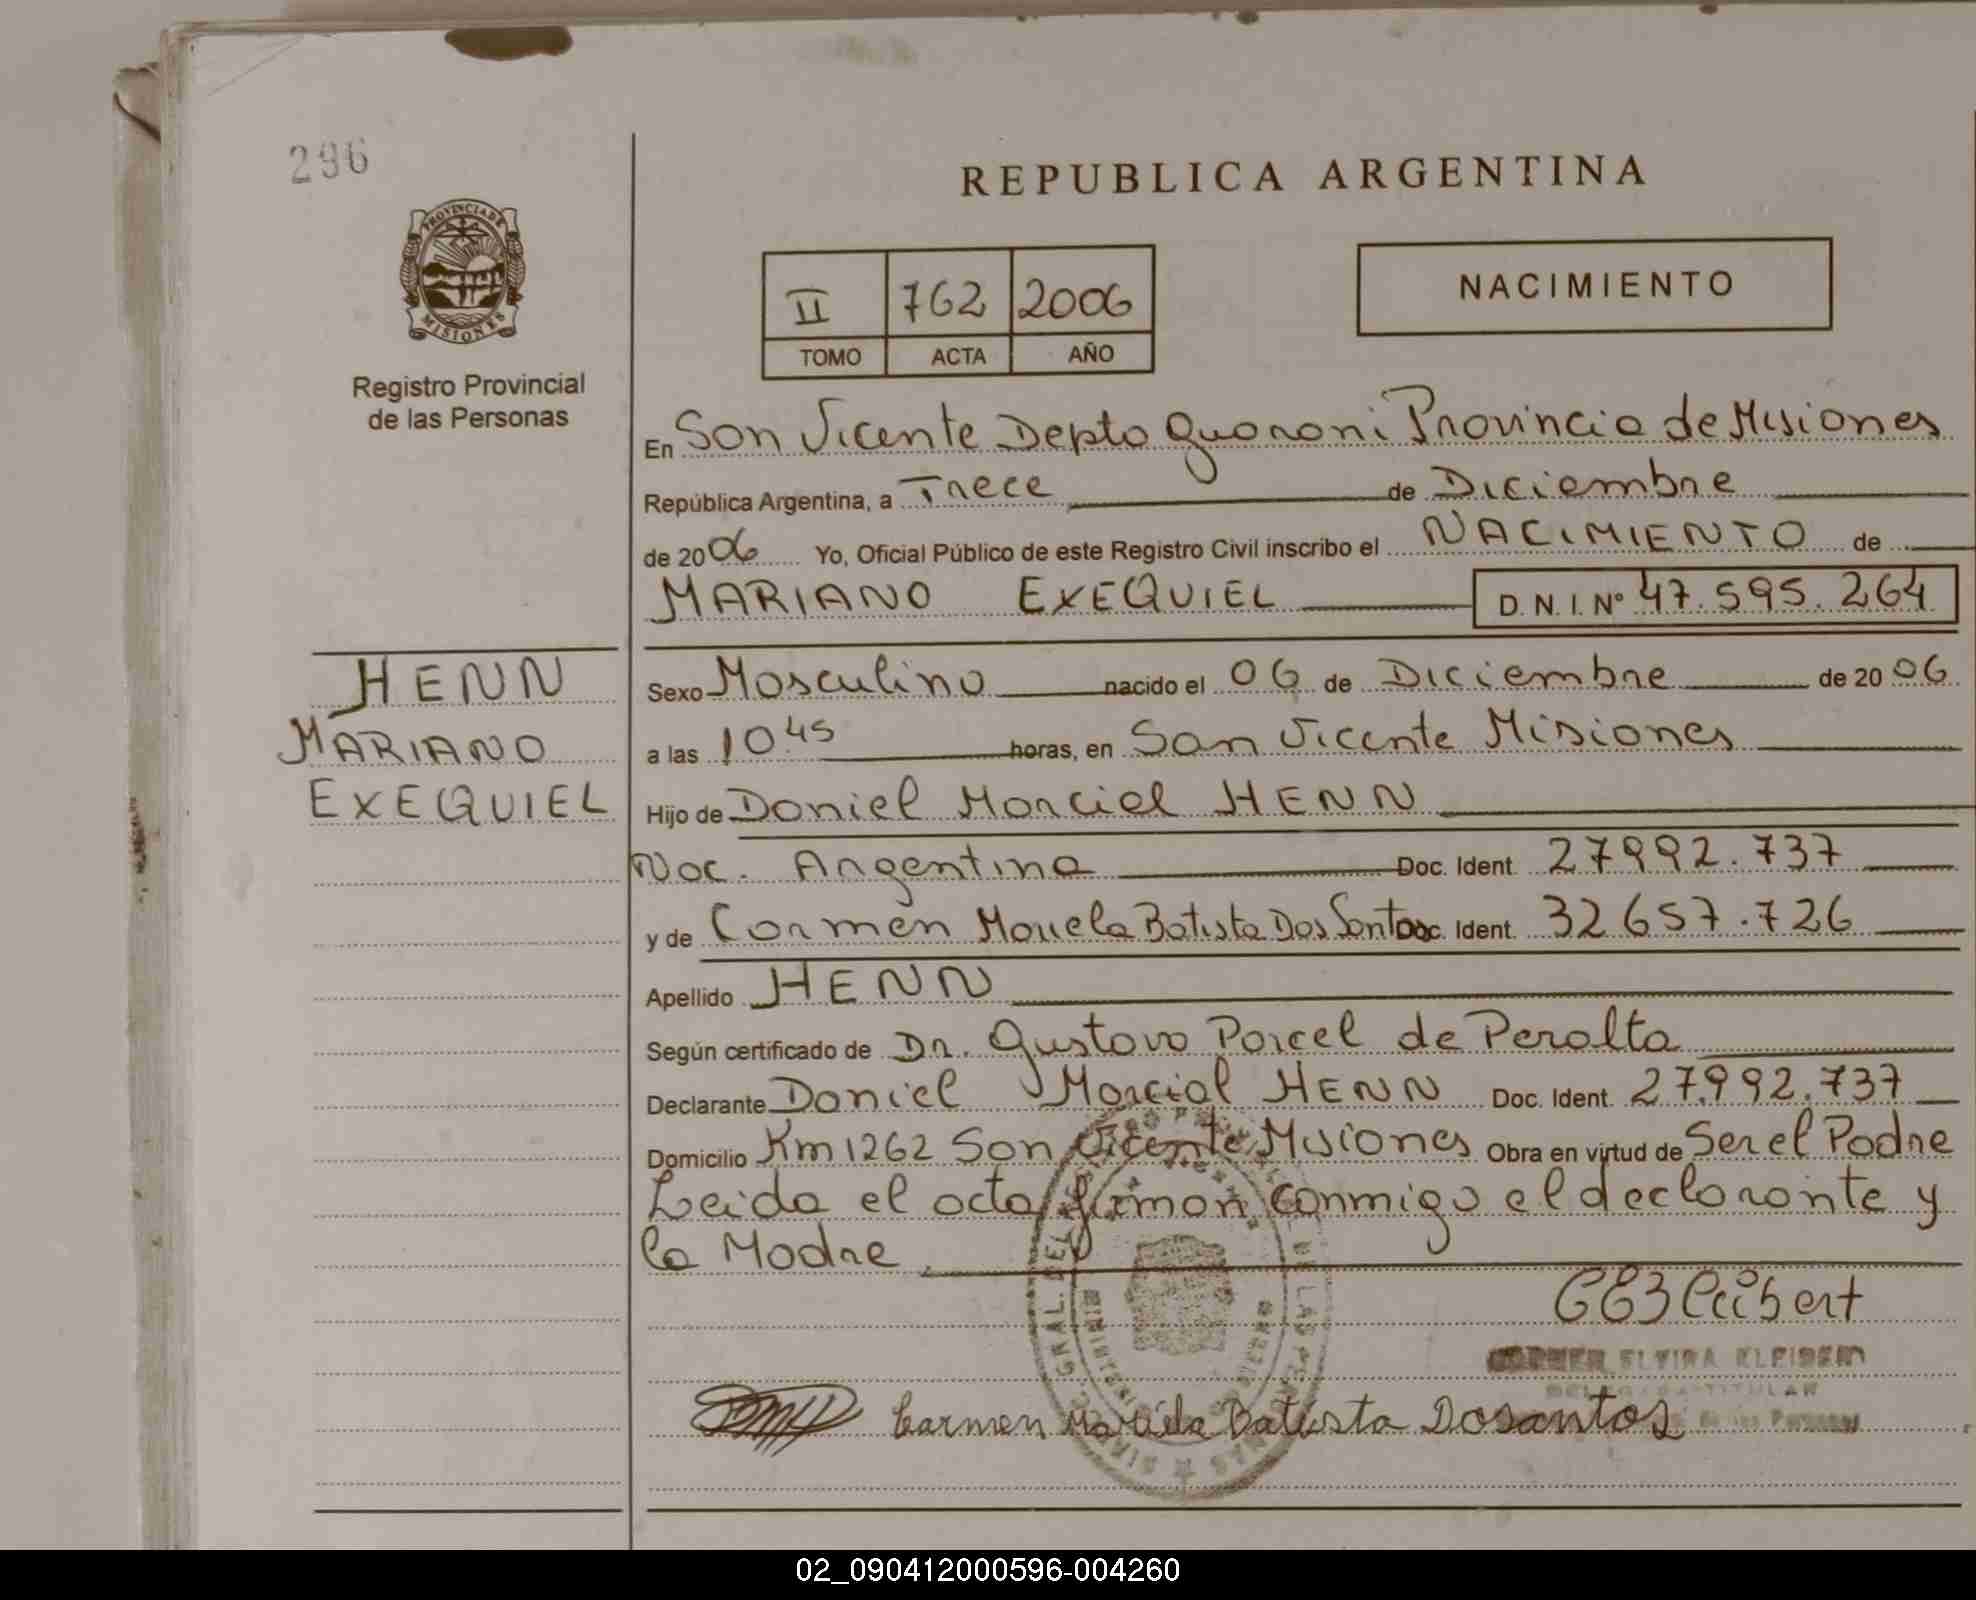 296
PROVINCIA DE
MISIONES
Registro Provincial
de las Personas
REPUBLICA ARGENTINA
II 762 2006
TOMO ACTA AÑO
NACIMIENTO
En San Vicente Depto Guarani Provincia de Misiones
República Argentina, a Trece de Diciembre
de 2006 Yo, Oficial Público de este Registro Civil inscribo el NACIMIENTO de
MARIANO EXEQUIEL D.N.I.Nº 47.595.264
HENN
MARIANO
EXEQUIEL
Sexo Masculino nacido el 06 de Diciembre de 2006
a las 10 45 horas, en San Vicente Misiones
Hijo de Daniel Marcial HENN
Nac. Argentina Doc. Ident. 27992.737
y de Carmen Mariela Batista Dos Santos Doc. Ident. 32657.726
Apellido HENN
Según certificado de Dr. Gustavo Porcel de Peralta
Declarante Daniel Marcial HENN Doc. Ident. 27.992.737
Domicilio Km 1262 San Vicente Misiones Obra en virtud de Ser el Padre
Leida el acta firman conmigo el declarante y
la Madre
CARMEN ELVIRA
TITULAR
Carmen Mariela Batista Dosantos
02_090412000596-004260